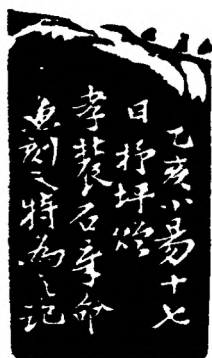 乙亥小易十七
日抒坪贻
孝裴石章命
惠刻之特為之記